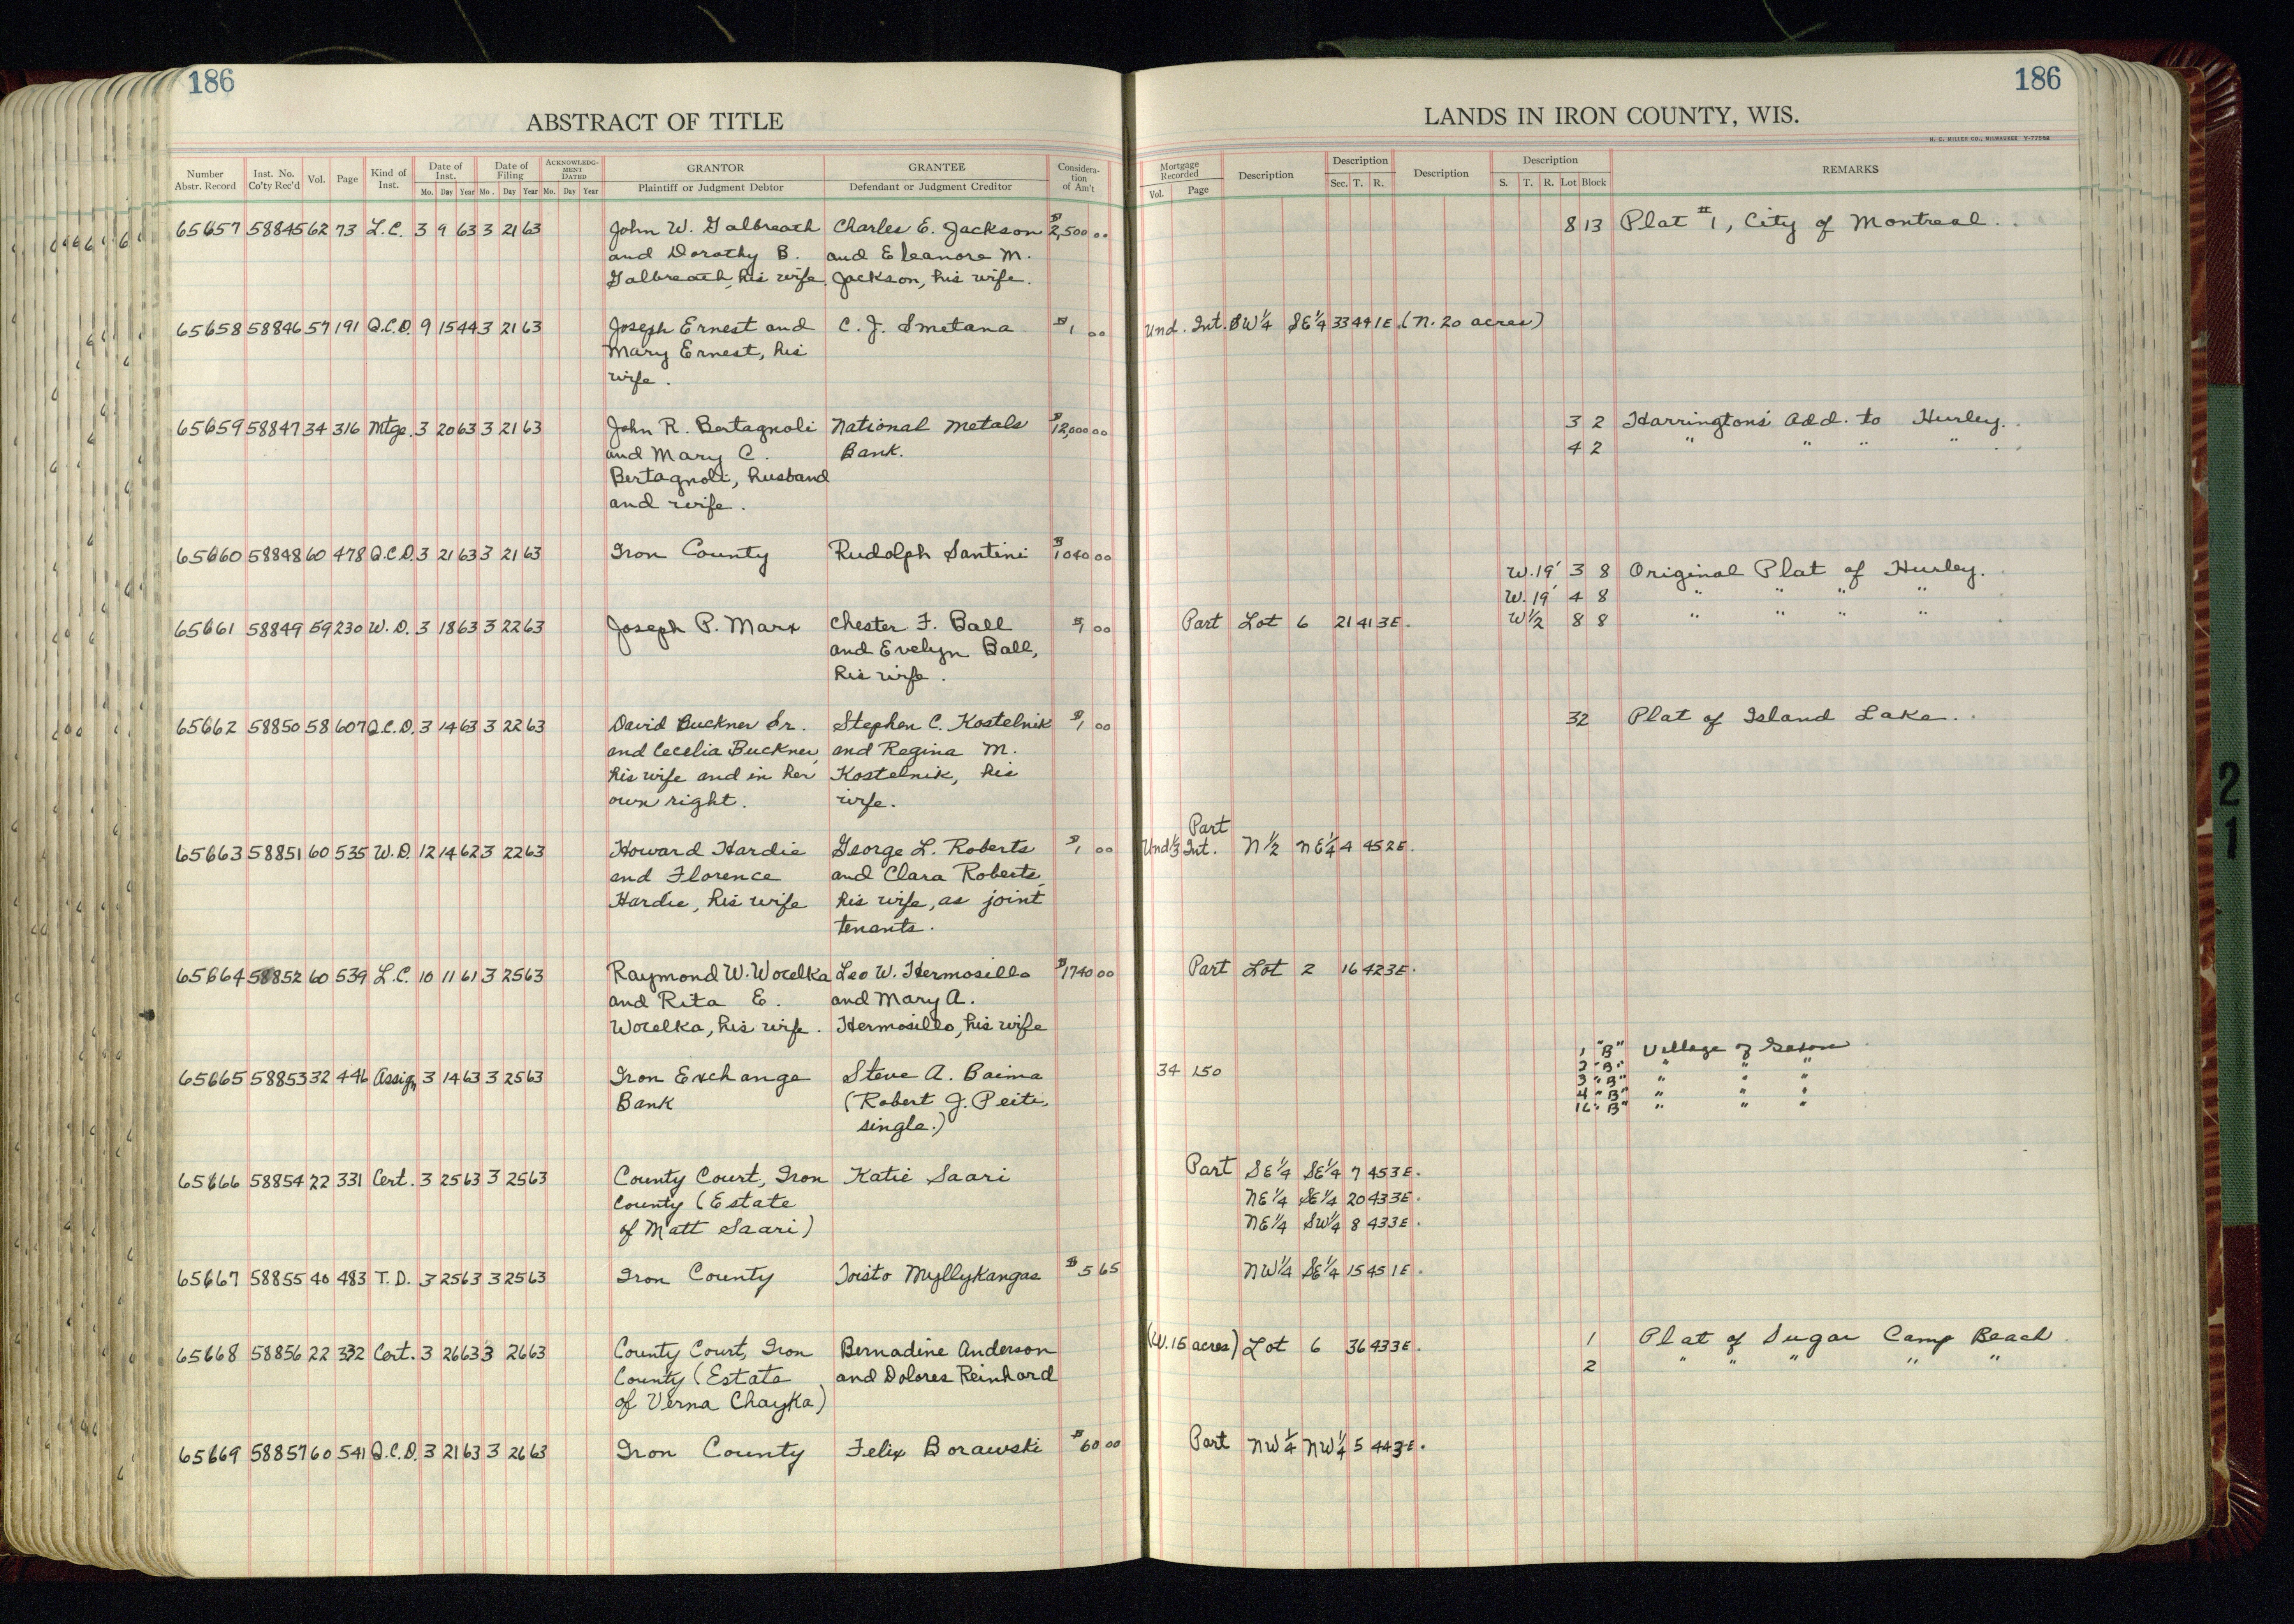 186
ABSTRACT OF TITLE
Number Abstr. Record | Inst. No. Co'ty Rec'd | Vol. | Page | Kind of Inst. | Date of Inst. Mo. Day Year | Date of Filing Mo. Day Year | ACKNOWLEDGMENT DATED Mo. Day Year | GRANTOR Plaintiff or Judgment Debtor | GRANTEE Defendant or Judgment Creditor | Consideration of Am't
65657 58845 62 73 L.C. 3 9 63 3 21 63 John W. Galbreath Charles E. Jackson $2,500 00
and Dorothy B. and Eleanore M.
Galbreath, his wife. Jackson, his wife.
65658 58846 57 191 Q.C.D. 9 15 44 3 21 63 Joseph Ernest and C. J. Smetana $1 00
Mary Ernest, his
wife.
65659 58847 34 316 Mtge. 3 20 63 3 21 63 John R. Bertagnoli National Metals $12,000 00
and Mary C. Bank.
Bertagnoli, husband
and wife.
65660 58848 60 478 Q.C.D. 3 21 63 3 21 63 Iron County Rudolph Santini $1040 00
65661 58849 59 230 W.D. 3 18 63 3 22 63 Joseph P. Marx Chester F. Ball $1 00
and Evelyn Ball,
his wife.
65662 58850 58 607 Q.C.D. 3 14 63 3 22 63 David Buckner Sr. Stephen C. Kostelnik $1 00
and Cecelia Buckner, and Regina M.
his wife and in her Kostelnik, his
own right. wife.
65663 58851 60 535 W.D. 12 14 62 3 22 63 Howard Hardie George L. Roberts $1 00
and Florence and Clara Roberts,
Hardie, his wife his wife, as joint
tenants.
65664 58852 60 539 L.C. 10 11 61 3 25 63 Raymond W. Wocelka Leo W. Hermosillo $1740 00
and Rita E. and Mary A.
Wocelka, his wife. Hermosillo, his wife
65665 58853 32 446 Assign 3 14 63 3 25 63 Iron Exchange Steve A. Baima
Bank (Robert J. Peite,
single.)
65666 58854 22 331 Cert. 3 25 63 3 25 63 County Court, Iron Katie Saari
County (Estate
of Matt Saari)
65667 58855 40 483 T.D. 3 25 63 3 25 63 Iron County Toisto Myllykangas $5 65
65668 58856 22 332 Cert. 3 26 63 3 26 63 County Court, Iron Bernadine Anderson
County (Estate and Dolores Reinhard
of Verna Chayka)
65669 58857 60 541 Q.C.D. 3 21 63 3 26 63 Iron County Felix Borawski $60 00
186
LANDS IN IRON COUNTY, WIS.
H. C. MILLER CO., MILWAUKEE
Mortgage Recorded Vol. Page | Description | Description Sec. T. R. | Description | Description S. T. R. Lot Block | REMARKS
8 13 Plat #1, City of Montreal.
Und. Int. SW¼ SE¼ 33 44 1E (N. 20 acres)
3 2 Harrington's Add. to Hurley.
4 2 " " " "
W. 19' 3 8 Original Plat of Hurley.
W. 19' 4 8 " " " "
Part Lot 6 21 41 3E. W½ 8 8 " " " "
32 Plat of Island Lake.
Part
Und ⅓ Int. N½ NE¼ 4 45 2E.
Part Lot 2 16 42 3E.
1 "B" Village of Saxon
34 150 2 "B" " " "
3 "B" " " "
4 "B" " " "
16 "B" " " "
Part SE¼ SE¼ 7 45 3E.
NE¼ SE¼ 20 43 3E.
NE¼ SW¼ 8 43 3E.
NW¼ SE¼ 15 45 1E.
(W. 15 acres) Lot 6 36 43 3E. 1 Plat of Sugar Camp Beach
2 " " " " "
Part NW¼ NW¼ 5 44 3E.
21